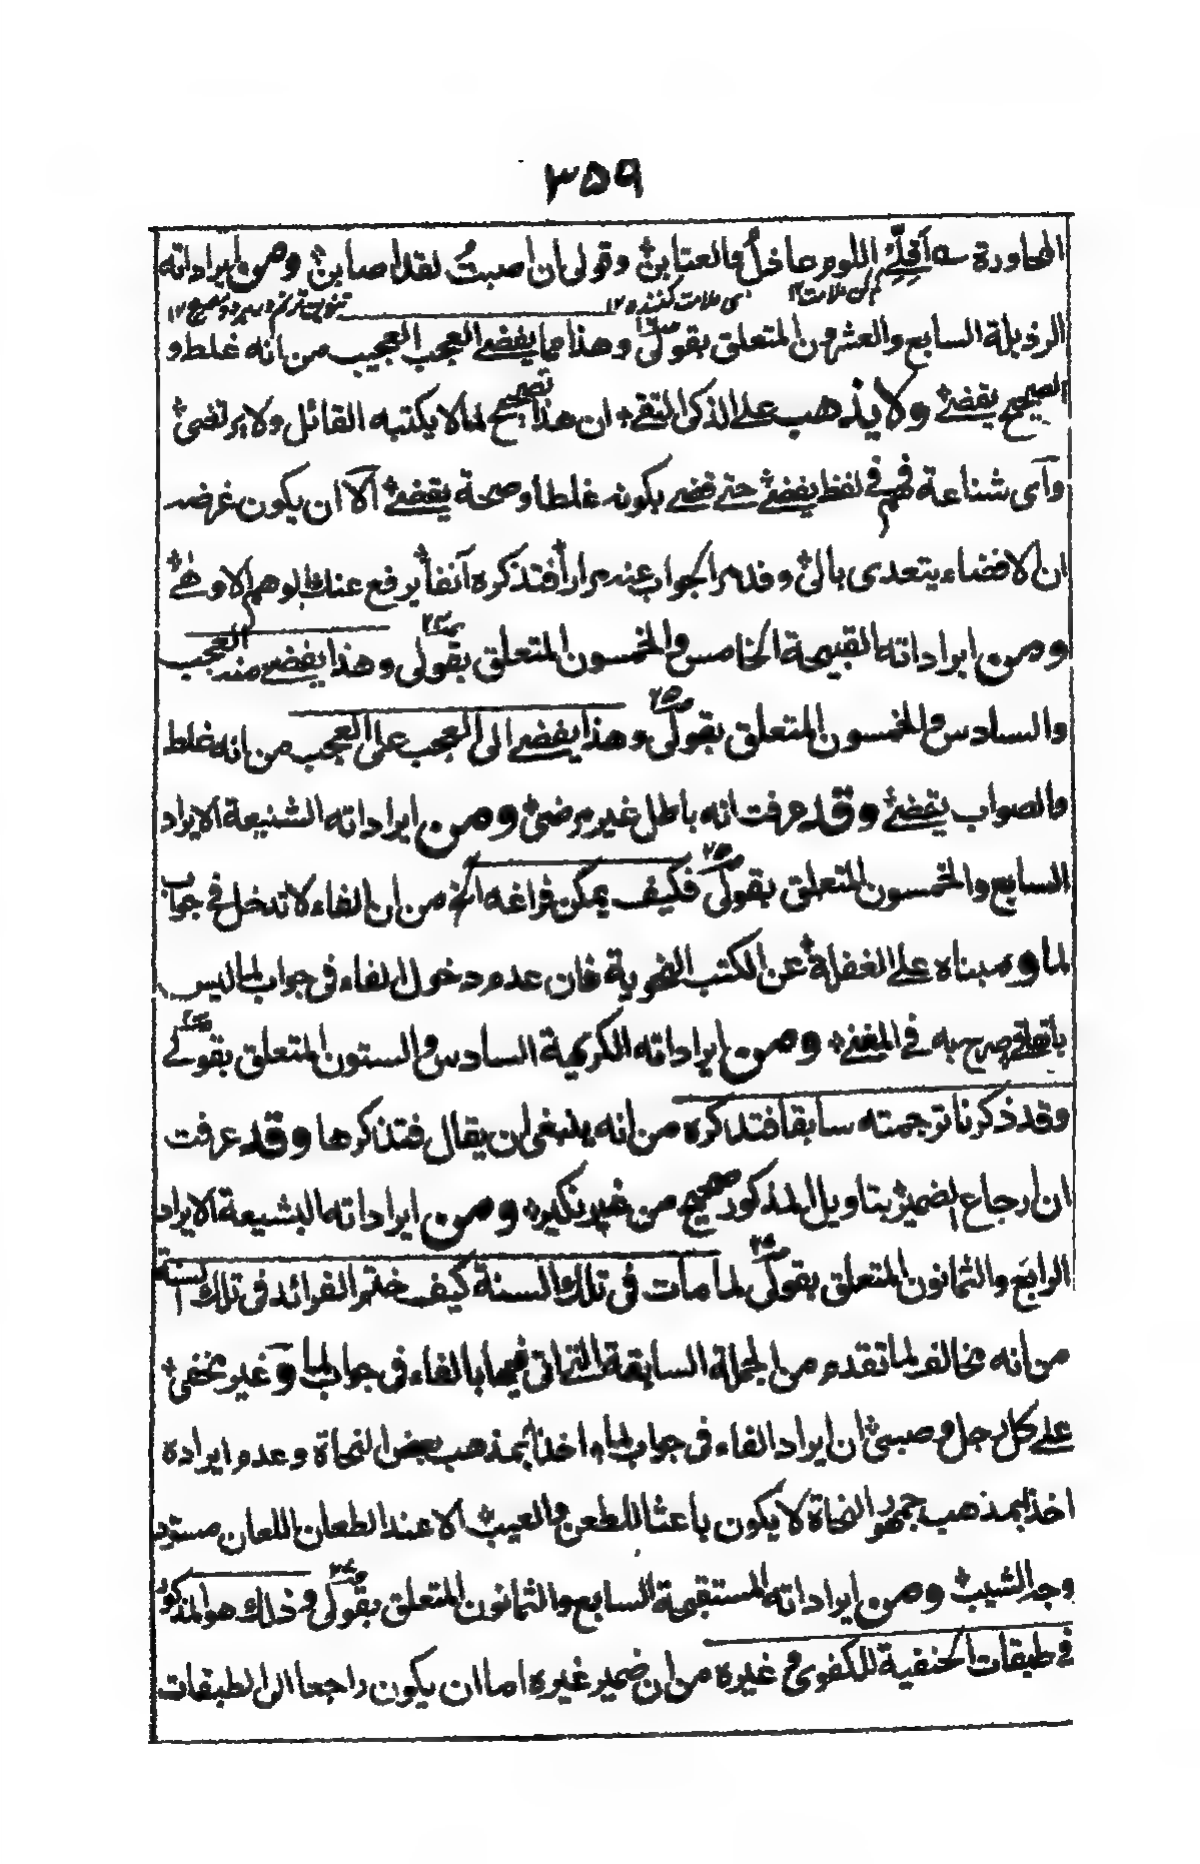 ۳۵۹
المحاورة سه أقلّي اللوم عاذلُ والعتابنْ وقولى ان اصبتُ لقد اصابنْ ومن ايراداته
كم كن ملامت ۱۲ ملامت كننده ۱۲ تنوين ترنم
الرذيلة السابع والعشرون المتعلق بقولى وهذا مما يفضے العجب العجيب من انه غلط و
الصحيح يقضے ولا يذهب على الذكى التقے ان هذا تصحيح لما لا يكتبه القائل ولا يرتضى
وآى شناعة فهم فى لفظ يفضے حتے قضے بكونه غلطا وصحة يقضے الا ان يكون غرضه
ان الافضاء يتعدى بالى وقد مر الجواب عنه مرارا فتذكره آنفا يرفع عنك الوهم الاوهے
ومن ايراداته القبيحة الخامس والخمسون المتعلق بقولى وهذا يفضے منه العجب
والسادس والخمسون المتعلق بقولى وهذا يفضے الى العجب على العجب من انه غلط
والصواب يقضے وقد عرفت انه باطل غير مرضى ومن ايراداته الشنيعة الايراد
السابع والخمسون المتعلق بقولى فكيف يمكن فراغه الخ من ان الفاء لا تدخل فى جواب
لما ومبناه على الغفلة عن الكتب النحوية فان عدم دخول الفاء فى جواب لما ليس
باتفاقے صرح به فے المغنے ومن ايراداته الكريهة السادس والستون المتعلق بقولے
وقد ذكرنا ترجمته سابقا فتذكره من انه ينبغى ان يقال فتذكرها وقد عرفت
ان ارجاع الضمير بتاويل المذكور صحيح من غير نكيره ومن ايراداته البشيعة الايراد
الرابع والثمانون المتعلق بقولى لما مات فى تلك السنة كيف ختم الفرائد فى تلك السنة
من انه مخالف لما تقدم من الجملة السابقة التى اتى فيها بالفاء فى جواب لما وغير مخفى
على كل رجل وصبى ان ايراد الفاء فى جواب لما اخذا بمذهب بعض النحاة وعدم ايراده
اخذا بمذهب جمهور النحاة لا يكون باعثا للطعن والعيب الا عند الطعان اللعان مسود
وجه الشيب ومن ايراداته المستقبحة السابع والثمانون المتعلق بقولى وذلك هو المذكور
فى طبقات الحنفية للكفوى وغيره من ان ضمير غيره اما ان يكون راجعا الى الطبقات